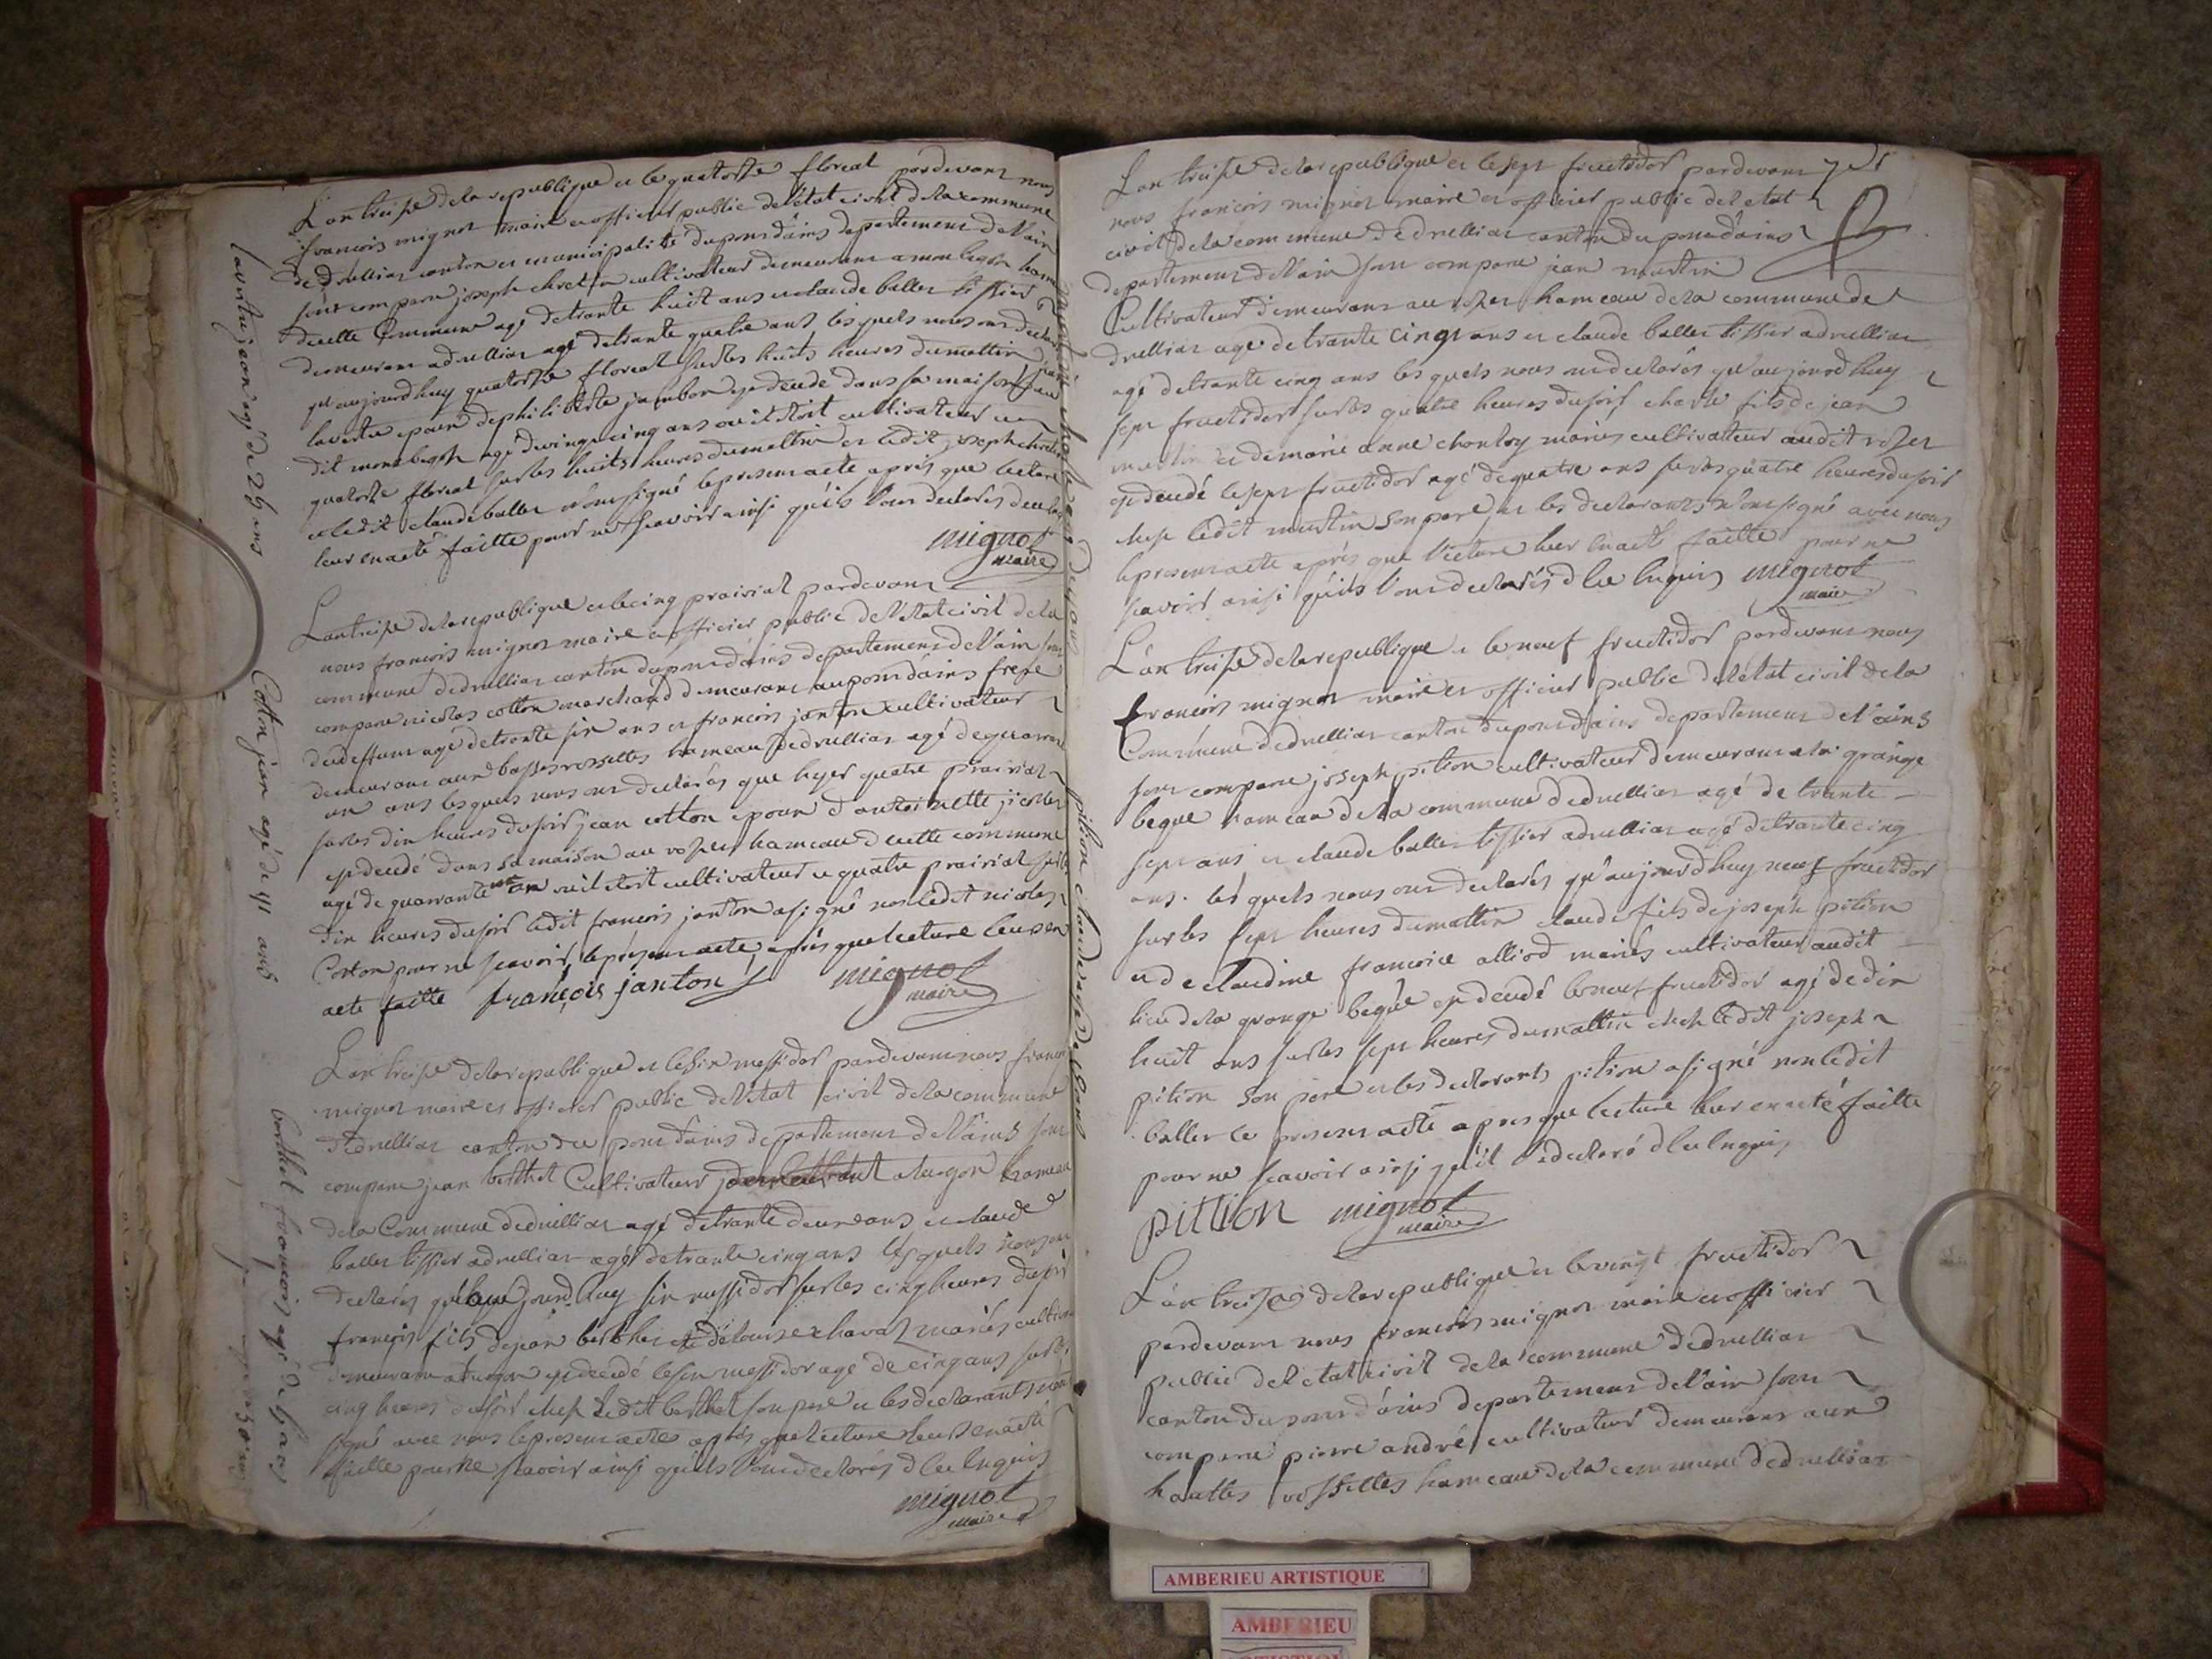 L'an treise de la republique et le quatorse floreal pardevant nous
francois mignot maire et officier public de l'état civil de la commune
de druilliat canton et municipalité du pont d'ains departement de l'ain
sont comparu joseph chretin cultivateur demeurant a ham
de cette Commune agé de trante huit ans et claude ballet tissier
demeurant a druilliat agé de trante quatre ans, les quels nous ont declaré
qu'aujourd'huy quatorse floreal sur les huits heures du mattin jean
lavertu epoux de philiberte jambon est decedé dans sa maison au
dit agé de vingt cinq ans où il étoit cultivateur
quatorse floreal sur les huits heures du mattin et ledit joseph chretin
et ledit claude ballet n'ont signé le present acte après que lecture
leur en a eté faitte pour ne scavoir ainsi qu'ils l'ont declarés
mignot
maire
L'an treise de la republique et le cinq prairial pardevant
nous francois mignot maire et officier public de l'état civil de la
commune de druilliat canton du pont d'ains departement de l'ain sont
comparu nicolas cotton marchand demeurant au pont d'ains frere
du deffunt agé de trante six ans et francois janton cultivateur
demeurant aux basses rossettes hameau de druillat agé de quarante
un ans les quels nous ont declarés que hyer quatre prairial
sur les dix heures du soir jean cotton epoux d'antoinette
est decedé dans sa maison au hameau de cette commune
agé de quarante un an où il étoit cultivateur le quatre prairial sur les
dix heures du soir ledit francois janton a signé non ledit nicolas
Cotton pour ne scavoir, le présent acte, après que lecture leur en
a eté faitte françois janton mignot
maire
L'an treise de la republique et le six messidor pardevant nous francois
mignot maire et officier public de l'état civil de la commune
de druillat canton du pont d'ains departement de l'ains sont
comparu jean berthet Cultivateur a turgon hameau
de la Commune de druilliat agé de trante deux ans et claude
ballet tissier a druilliat agé de trante cinq ans les quels nous ont
declarés qu'aujourd'huy six messidor sur les cinq heures du soir
françois fils de jean berthet et de louise chavat mariés cultiv
demeurant a turgon est decedé le six messidor agé de cinq ans sur les
cinq heures du soir chez ledit berthet son pere et les declarants n'ont
signé avec nous le present acte après que lecture leur en a eté
faitte pour ne scavoir ainsi qu'ils l'ont declarés de ce enquis
mignot
maire
lavertu jean agé de 25 ans
Cotton jean agé de 41 ans
berthet françois agé de 5 ans
L'an treise de la republique et le sept fructidor pardevant
nous francois mignot maire et officier public de l'etat
civil de la commune de druilliat canton du pont d'ains
departement de l'ain sont comparu jean martin
Cultivateur demeurant au hameau de la commune de
druilliat agé de trante cinq ans et claude ballet tissier a druilliat
agé de trante cinq ans les quels nous ont declarés qu'aujourd'huy
sept fructidor sur les quatre heures du soir, fils de jean
martin et de marie anne mariés cultivateur audit
est decedé le sept fructidor agé de quatre ans sur les quatre heures du soir
chez ledit martin son pere, et les declarants n'ont signé avec nous
le present acte après que lecture leur en a eté faitte pour ne
scavoir ainsi qu'ils l'ont declarés de ce enquis mignot
maire
L'an treise de la republique et le neuf fructidor pardevant nous
francois mignot maire et officier public de l'état civil de la
Commune de druilliat canton du pont d'ains departement de l'ains
sont comparu joseph pition cultivateur demeurant a la grange
begue hameau de la commune de druilliat agé de trante
sept ans et claude ballet tissier a druilliat agé de trante cinq
ans. les quels nous ont declarés qu'aujourd'huy neuf fructidor
sur les sept heures du mattin claude fils de joseph pition
et de claudine francoise alliod mariés cultivateur audit
lieu de la grange begue est decedé le neuf fructidor agé de dix
huit ans sur les sept heures du mattin chez ledit joseph
pition son pere et les declarants pition a signé non ledit
ballet le present acte après que lecture leur en a eté faitte
pour ne scavoir ainsi qu'il l'a declaré de ce enquis
pittion mignot
maire
L'an treise de la republique et le vingt fructidor
pardevant nous francois mignot maire et officier
public de l'etat civil de la commune de druilliat
canton du pont d'ains departement de l'ain sont
comparu pierre andré cultivateur demeurant aux
hauttes rossettes hameau de la commune de druilliat
pition claude agé de 18 ans
AMBERIEU ARTISTIQUE
AMBERIEU